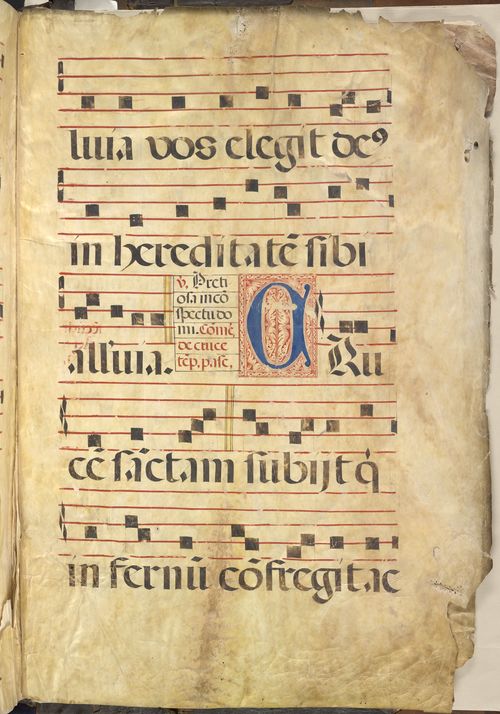 luia vos elegit de9
in hereditatē sibi
℣. Preti
osa in cō
spectu do
mi. Com̄.
de cruce
tēp. pasc.
alľuia. CRu
cē sāctam subijt q̇
in fernū cōfregit ac